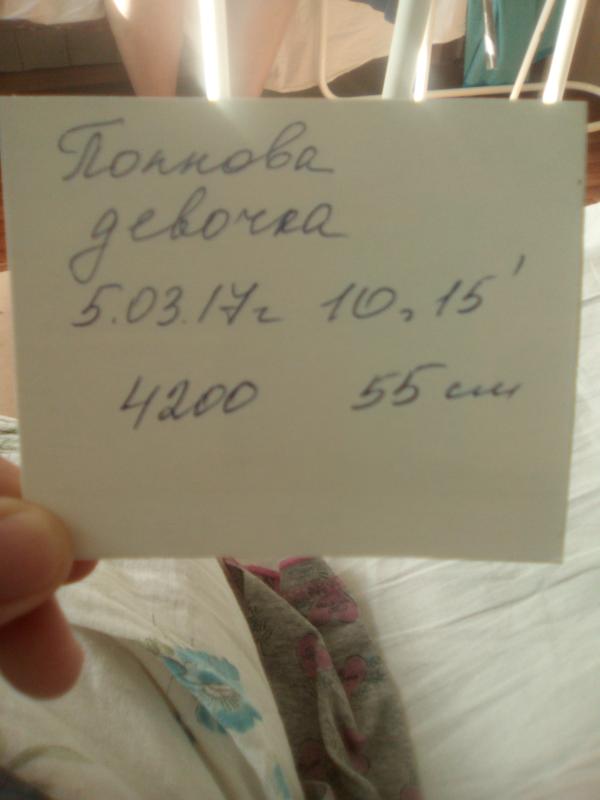 Попнова
девочка
5.03.17г 10, 15'
4200 55 см